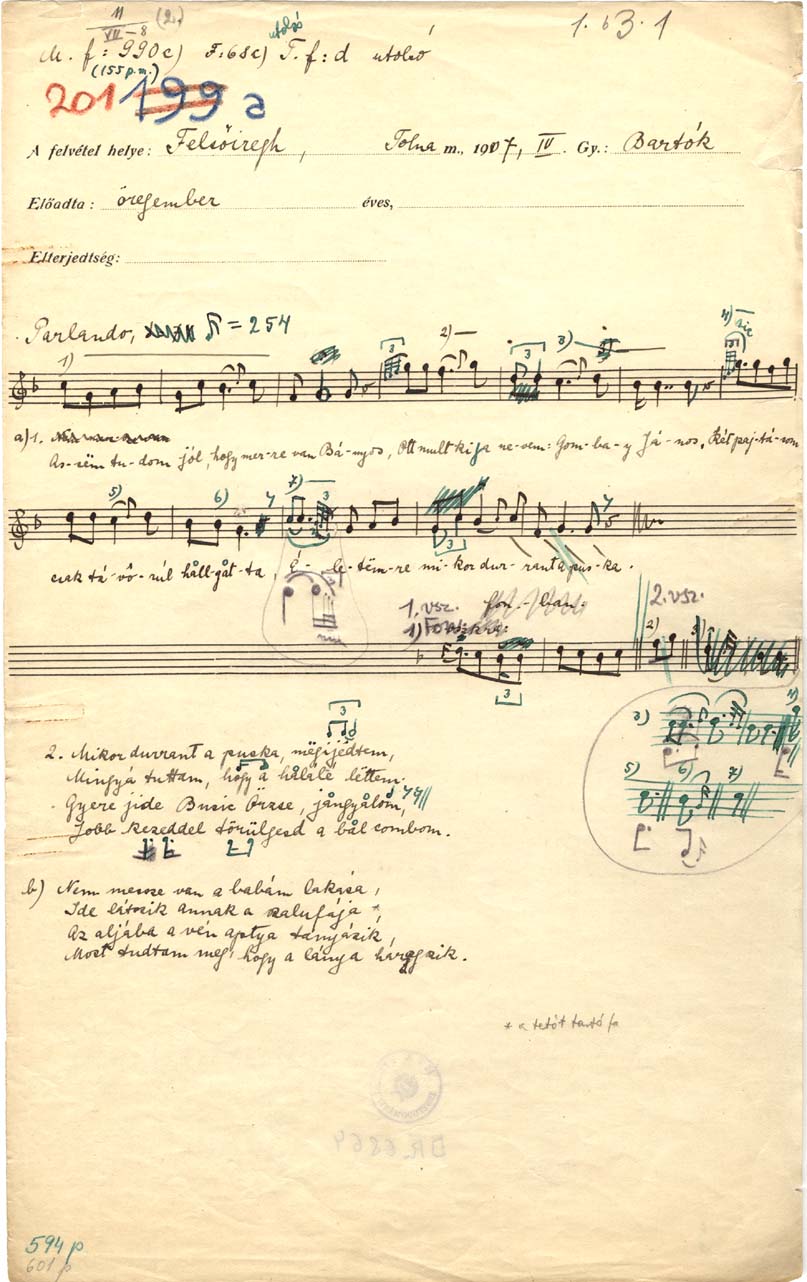 11
VII-8 (2.)
1. b 3. 1
utolsó
M. f: 990c) F:68c) T. f: d utolsó
(155 p.m.)
201 199 a
A felvétel helye: Felsőiregh, Tolna m., 1907, IV. Gy.: Bartók
Előadta: öregember éves,
Elterjedtség:
Parlando, = 254
1) 3 2) 3 3) 4) sic
a) 1. As-sëm tu-dom jól, hogy mer-re van Bá-nyos, Ott mult ki ja ne-vem: Gom-ba-y Já-nos, Két paj-tá-som
5) 6) 7) 3
csak tá-vô-rúl håll-gåt-ta, É-le-tëm-re mi-kor dur-rant a pus-ka.
3
1. vsz. 2. vsz.
1) 2) 3)
3
3) 4)
5) 6) 7)
3
2. Mikor durrant a puska, mëgijedtem,
Mingyá tuttam, hogy a hålålé lëttem.
Gyere jide Busic Örzse, jångyålom,
Jobb kezeddel törülgesd a bål combom.
b) Nem messze van a babám lakása,
Ide látszik annak a szalufája *,
Az aljába a vén aptya tanyázik,
Most tudtam meg, hogy a lánya háragszik.
* a tetőt tartó fa
DR. 6864
594 p
601 p